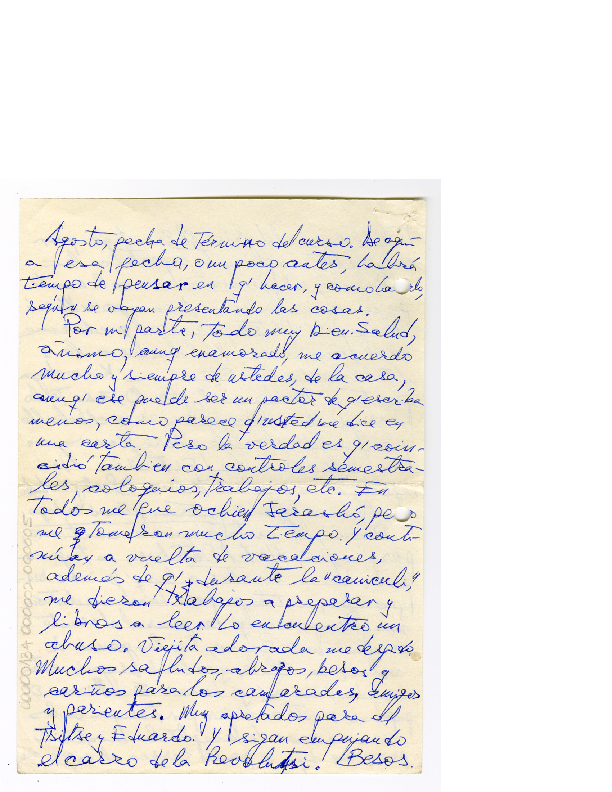 Agosto, fecha de Término del curso. De aquí
a esa fecha, o un poco antes, habrá
tiempo de pensar en q' hacer, y como hacerlo,
según se vayan presentando las cosas.
Por mi parte, todo muy bien. Salud,
ánimo, aunq' enamorado, me acuerdo
mucho y siempre de ustedes, de la casa,
aunq' ese puede ser un factor de q' escriba
menos, como parece q' usted me dice en
una carta. Pero la verdad es q' coin-
cidió también con controles semestra-
les, coloquios, trabajos, etc. En
todos me fue ochien Jarashó, pero
me tomaron mucho tiempo. Y conti-
núan a vuelta de vacaciones,
además de q' durante la "caniculi",
me dieron trabajos a preparar y
libros a leer. Lo encuentro un
abuso. Viejita adorada me despido
Muchos saludos, abrazos, besos y
cariños para los camaradas, amigos
y parientes. Muy apretados para el
y Eduardo. Y sigan empujando
el carro de la Besos.